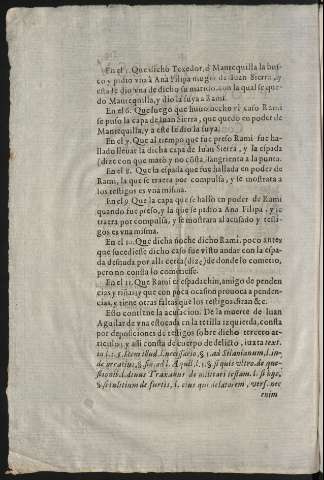 En el 5. Que dicho Texedor, ò Mantequilla la bus-
cò y pidiò vio à Ana Filipa muger de Iuan Sierra, y
esta le diò vna de dicho su marido, con la qual se que-
dò Mantequilla, y diò la suya à Rami.
En el 6. Que luego que huuo hecho el caso Rami
se puso la capa de Iuan Sierra, que quedò en poder de
Mantequilla, y à este le diò la suya.
En el 7. Que al tiempo que fue preso Rami fue ha-
llado lleuar la dicha capa de Iuan Sierra, y la espada
(dize con que matò y no costa) sangrienta à la punta.
En el 8. Que la espada que fue hallada en poder de
Rami, la que se traera por compulsa, y se mostrarà à
los testigos es vna misma.
En el 9. Que la capa que se hallò en poder de Rami
quando fue preso, y la que se pidiò à Ana Filipa, y se
traera por compulsa, y se mostrarà al acusado y testi-
gos es vna misma.
En el 10. Que dicha noche dicho Rami, poco antes
que sucediesse dicho caso fue visto andar con la espa-
da desnuda por alli cerca (dize) de donde lo cometiò,
pero no consta lo cometiesse.
En el 11. Que Rami es espadachin, amigo de penden
cias y riñas y que con poca ocasion prouoca à penden-
cias, y tiene otras faltas que los testigos diràn &c.
Esto contiene la acusacion. De la muerte de Iuan
Aguilar de vna estocada en la tetilla izquierda, consta
por deposiciones de testigos sobre dicho tercero ar-
ticulo, y assi consta de cuerpo de delicto, iuxta text.
in l. 1. §. Item illud. l. necessario, §. 1. ad Silanianum, l. in-
de neratius, §. fin. ad l. Aquil. l. 1. §. si quis vltro. de quæ-
stionib. l. diuus Traxanus de militari testam. l. si vge,
§. si institium de furtis, l. eius qui delatorem, vers. nec
enim